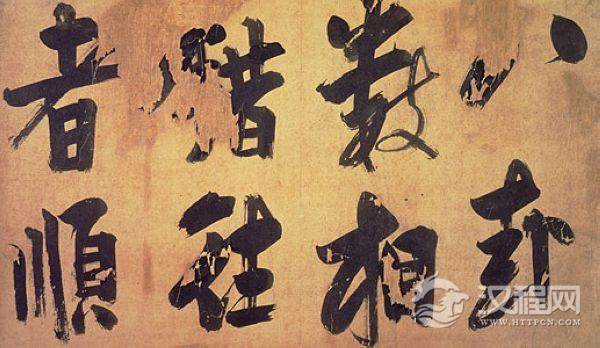 八卦
數相
錯往
者順
汉程网
WWW.HTTPCN.COM